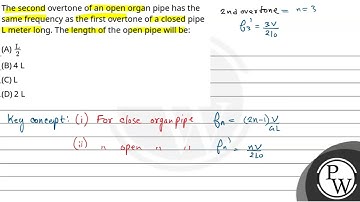 The second overtone of an open organ pipe has the
same frequency as the first overtone of a closed pipe
L meter long. The length of the open pipe will be:
(A) L/2
(B) 4 L
(C) L
(D) 2 L
2nd overtone = n = 3
f₃' = 3V/2l₀
Key concept: (i) For close organ pipe fₙ = (2n-1)V/4L
(ii) " open " " fₙ' = nV/2L₀
PW